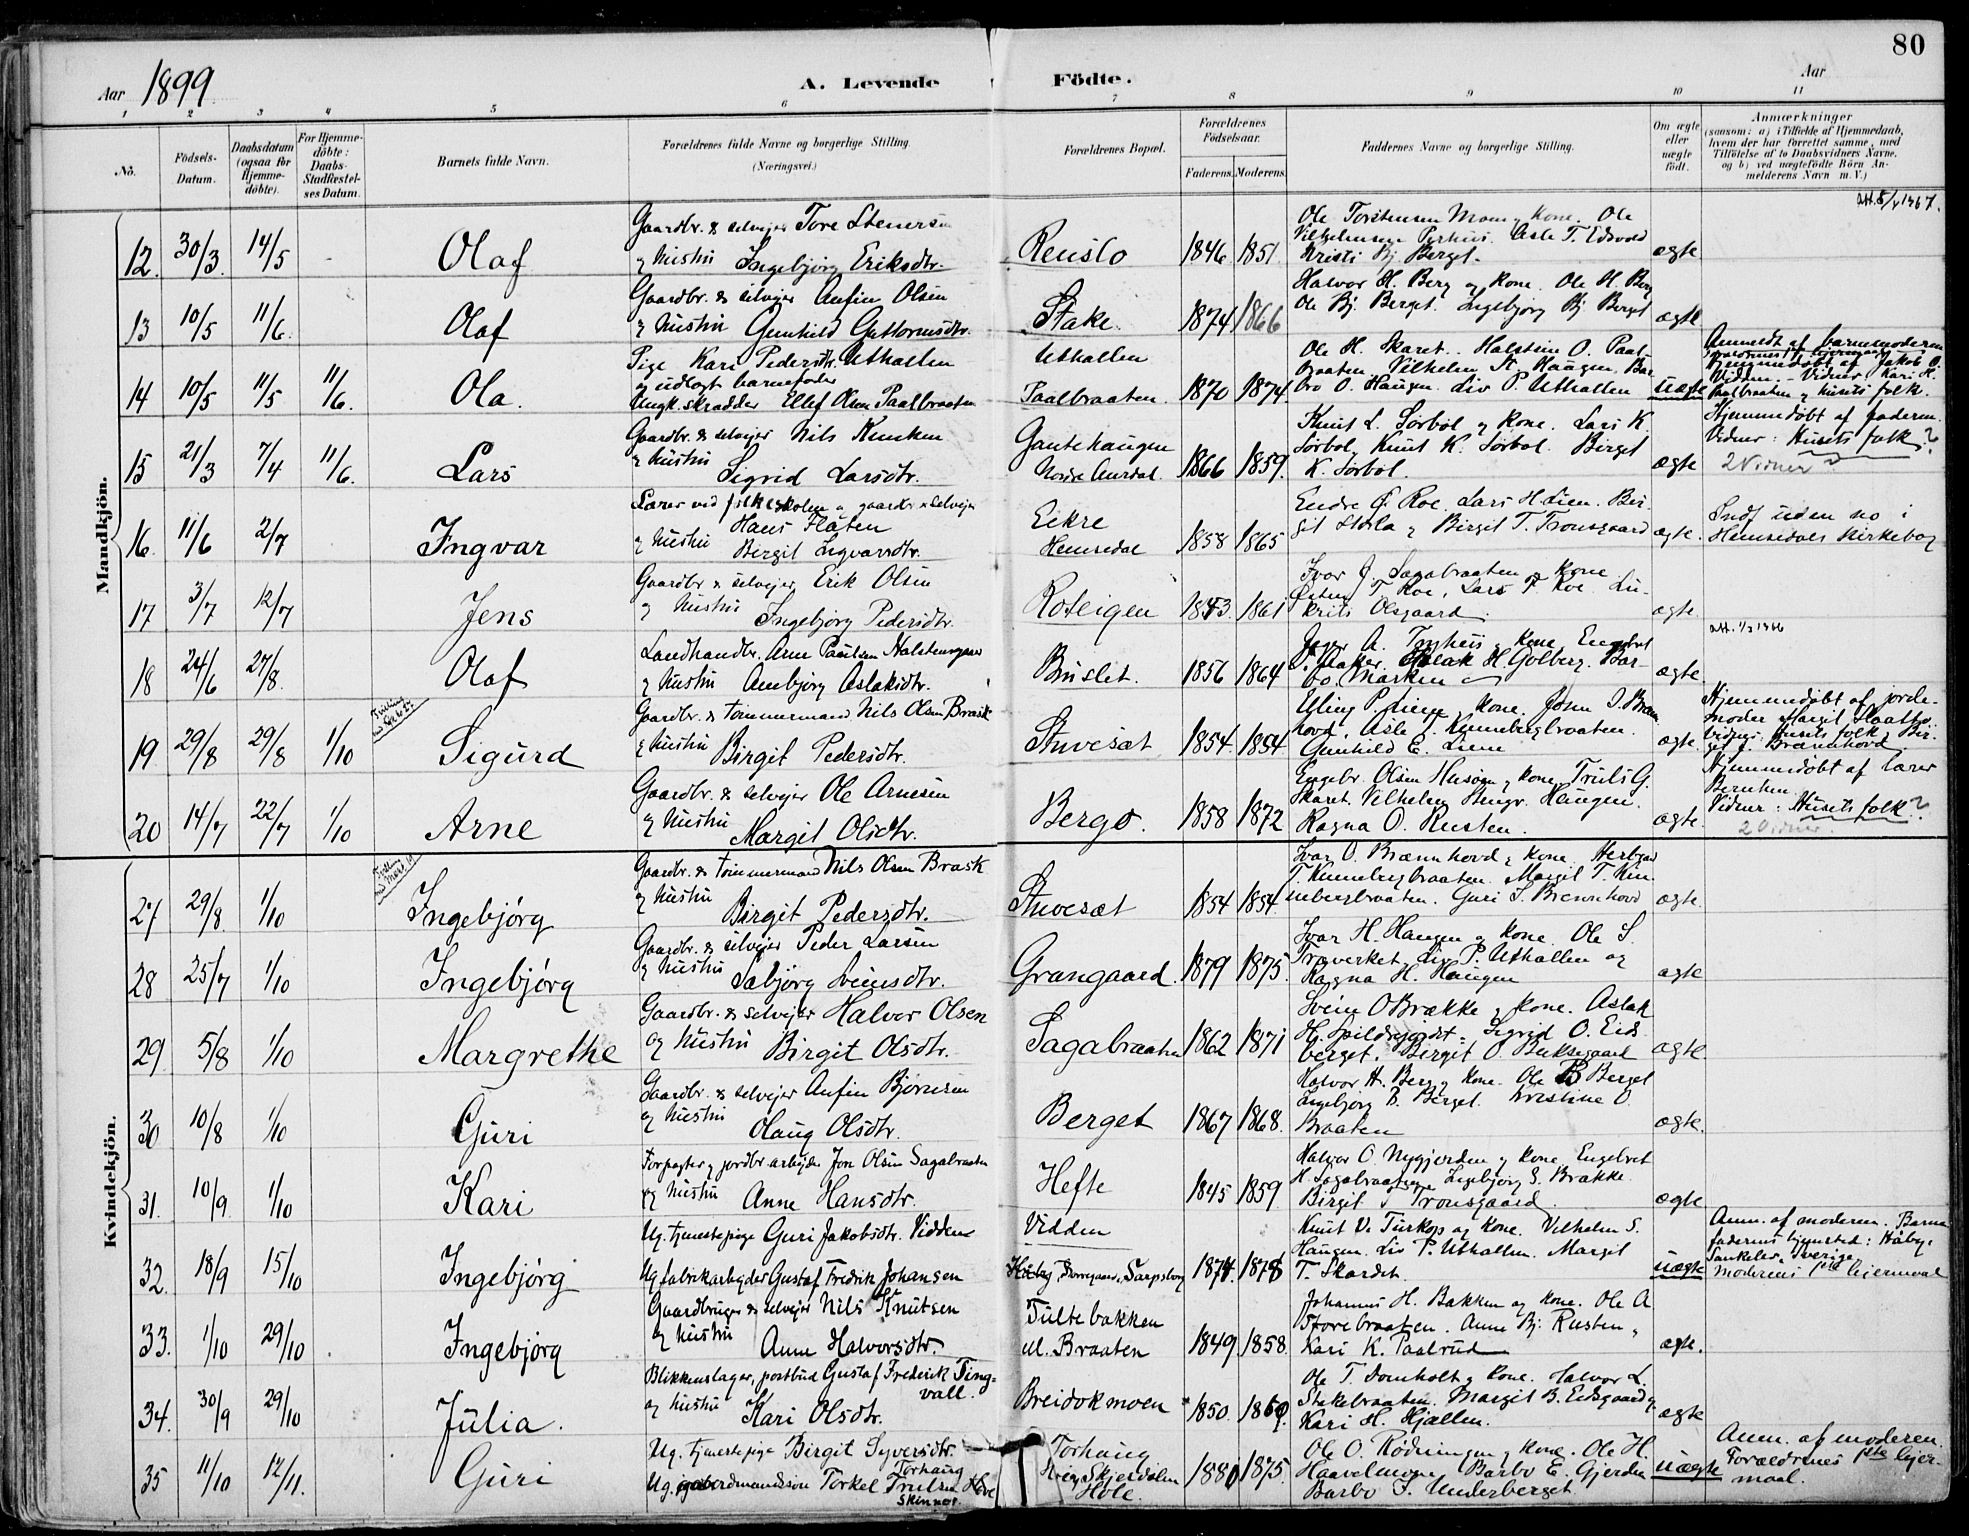 80
Aar 1899
A. Levende Födte.
Aar
1 2 3 4 5 6 7 8 9 10 11
No.
Födsels-Datum.
Daabsdatum (ogsaa for Hjemme-döbte).
For Hjemme-döbte: Daabs-Stadfæstel-ses Datum.
Barnets fulde Navn.
Forældrenes fulde Navne og borgerlige Stilling. (Næringsvei.)
Forældrenes Bopæl.
Forældrenes Födselsaar.
Faderens. Moderens.
Faddernes Navne og borgerlige Stilling.
Om ægte eller uægte födt.
Anmærkninger
(saasom: a) i Tilfælde af Hjemmedaab, hvem der har forrettet samme, med Tilföielse af to Daabsvidners Navne, og b) ved uægtefödte Börn An-melderens Navn m. V.)
Mandkjön.
12. 30/3. 14/5 - Olaf
Gaardbr. & selvejer Tore Stenersen
og hustru Ingebjörg Eriksdtr.
Renslo 1846 1851
Ole Torstensen Moen og kone. Ole
Vilhelmsen Perhus. Asle T. Eidsvold
Kristi Bj. Berget.
ægte
13 10/5 11/6. Olaf
Gaardbr. & selvejer Anfin Olsen
og hustru Gunhild Guttormsdtr.
Stake. 1874 1866
Halvor H. Berg og kone. Ole H. Berg
Ole Bj. Berget. Ingebjörg Bj. Berget
ægte
14 10/5 11/5 11/6. Ola.
Pige Kari Pedersdtr. Uthallen
og udlagt barnefader
Ungk. skrædder Ellef Olsen Paalbraaten
Uthallen
Paalbraaten. 1870 1874.
Ole H. Skaret. Halstein O. Paal-
braaten. Vilhelm K. Haugen. Bar-
bro O. Haugen. Liv P. Uthallen
uægte
Anmeldt af barnemoderen
Hjemmedöbt af Jakob O.
Vidden - Vidner Kari H.
Paalbraaten og husets folk.
15 21/3 7/4 11/6. Lars
Gaardbr. & selvejer Nils Knutsen
og hustru Sigrid Larsdtr.
Gautehaugen
Nordre Aurdal. 1866 1859.
Knut L. Sörbøl og kone. Lars K.
Sörbøl. Knut K. Sörbøl. Birget
K. Sörbøl.
ægte
Hjemmedöbt af faderen.
Vidner: Husets folk?
2 Vidner
16. 11/6 2/7 Ingvar
Lærer ved folkeskolen og gaardbr & selvejer
Hans Flaten
og hustru Birgit Ingvarsdtr.
Eikre
Hemsedal 1858 1865
Endre Ø. Roe. Lars H. Lien. Bir-
git Stöla og Birgit T. Tronsgaard
ægte.
Indf uden no i
Hemsedals kirkebog
17 3/7 12/7 Jens
Gaardbr & selvejer Erik Olsen
og hustru Ingebjörg Pedersdtr.
Roteigen 1843. 1861
Ivar J. Sagabraaten og kone
T. Roe, Lars T. Roe.
Olsgaard.
ægte.
18 24/6 27/8. Olaf
Landhandler Arne Paulsen Halstensgaard
og hustru Ambjörg Aslaksdtr.
Buslet. 1856 1864
A. Tryhus og kone
Aslak H. Golberg. Bar-
bo Marken
ægte.
19. 29/8 29/8 1/10 Sigurd
Gaardbr. & tömmermand Nils Olsen Brask
og hustru Birgit Pedersdtr.
Stuvesæt 1854. 1854.
Elling P. Liene og kone. John I. Bræn-
hovd. Asle T. Kunnebergbraaten.
Gunhild E. Liene
ægte.
Hjemmedöbt af jorde-
moder Margit Slaatto
Vidner: Husets folk, Bir-
git J. Brænnhovd
20 14/7 22/7 1/10 Arne
Gaardbr. & selvejer Ole Arnesen
og hustru Margit Olsdtr.
Bergo. 1858 1872
Engebr. Olsen Husoen og kone. Truls G.
Skaret. Vilhelm Haugen.
Ragna O. Rusten.
ægte.
Hjemmedöbt af lærer
Vidner: Husets folk?
2 Vidner.
Kvindekjön.
27 29/8. 1/10 Ingebjörg
Gaardbr. & tömmermand Nils Olsen Brask
og hustru Birgit Pedersdtr.
Stuvesæt 1854 1854.
Ivar O. Brænnhovd og kone. Herbrand
T. Kunnebergbraaten. Margit T. Kun-
nebergbraaten. Guri S. Brennhovd
ægte.
28 25/7 1/10 Ingebjörg
Gaardbr. & selvejer Peder Larsen
og hustru Sebjörg Sveinsdtr.
Grangaard. 1879 1875.
Ivar H. Haugen og kone. Ole S.
Traverket. Liv P. Uthallen og
Ragna H. Haugen
ægte
29. 5/8 1/10 Margrethe
Gaardbr. & selvejer Halvor Olsen
og hustru Birgit Olsdtr.
Sagabraaten 1862 1871
Svein O Brække og kone. Aslak
H. Sigrid O. Eids
berget. Birgit O.
ægte
30 10/8 1/10 Guri
Gaardbr. & selvejer Anfin Björnsen
og hustru Olaug Olsdtr.
Berget 1867 1868.
Halvor H. Berg og kone. Ole B Berget
Ingebjörg B. Berget. Kristine O.
Braaten
ægte.
31. 10/9 1/10 Kari
Forpagter og jordbr.arbejder Jon Olsen Sagabraaten
og hustru Anne Hansdtr.
Hefte 1845 1859
Halvor O. Nygjerden og kone. Engebret
H. Sagabraaten Ingebjörg S. Brække.
Birgit T Tronsgaard.
ægte
32. 18/9 15/10 Ingebjörg
Ug. tjenestepige Guri Jakobsdtr. Vidden
Ug fabrikarbejder Gustaf Fredrik Johansen
Vidden
Sarpsborg 1874. 1878
Knut V. Turkop og kone. Vilhelm S.
Haugen. Liv P. Uthallen. Margit
T. Skordet.
uægte
Anm. af moderen. Barne
faderens hjemsted: Håby,
Sverige
Moderens 1ste lejermaal
33. 1/10 29/10 Ingebjörg
Gaardbruger & selvejer Nils Knutsen
og hustru Anne Halvorsdtr.
Tultebakken
u. Braaten 1849. 1858.
Johannes H. Bakken og kone. Ole A
Storebraaten. Anne Bj. Rusten,
Kari K. Paalrud
ægte.
34. 30/9 29/10 Julia.
Blikkenslager, postbud Gustaf Frederik Ting-
vall.
og hustru Kari Olsdtr.
Breidokmoen 1850. 1860
Ole T. Domholt og kone. Halvor L.
Stakebraaten. Margit B. Eidsgaard og
Kari H. Hjallen.
ægte
35 11/10 12/11. Guri
Ug. tjenestepige Birgit Syversdtr.
Torhaug
Ug. gaardmandssön Torkel Trulsen Hove
Skinnes
Torhaug
Skjerdalen
Hole. 1880 1875.
Ole O. Rödningen og kone. Ole H.
Haavelmoen. Barbo E. Gjerde
Barbo T. Underberget
uægte
Anm. af moderen.
Forældrenes 1ste lejer-
maal.